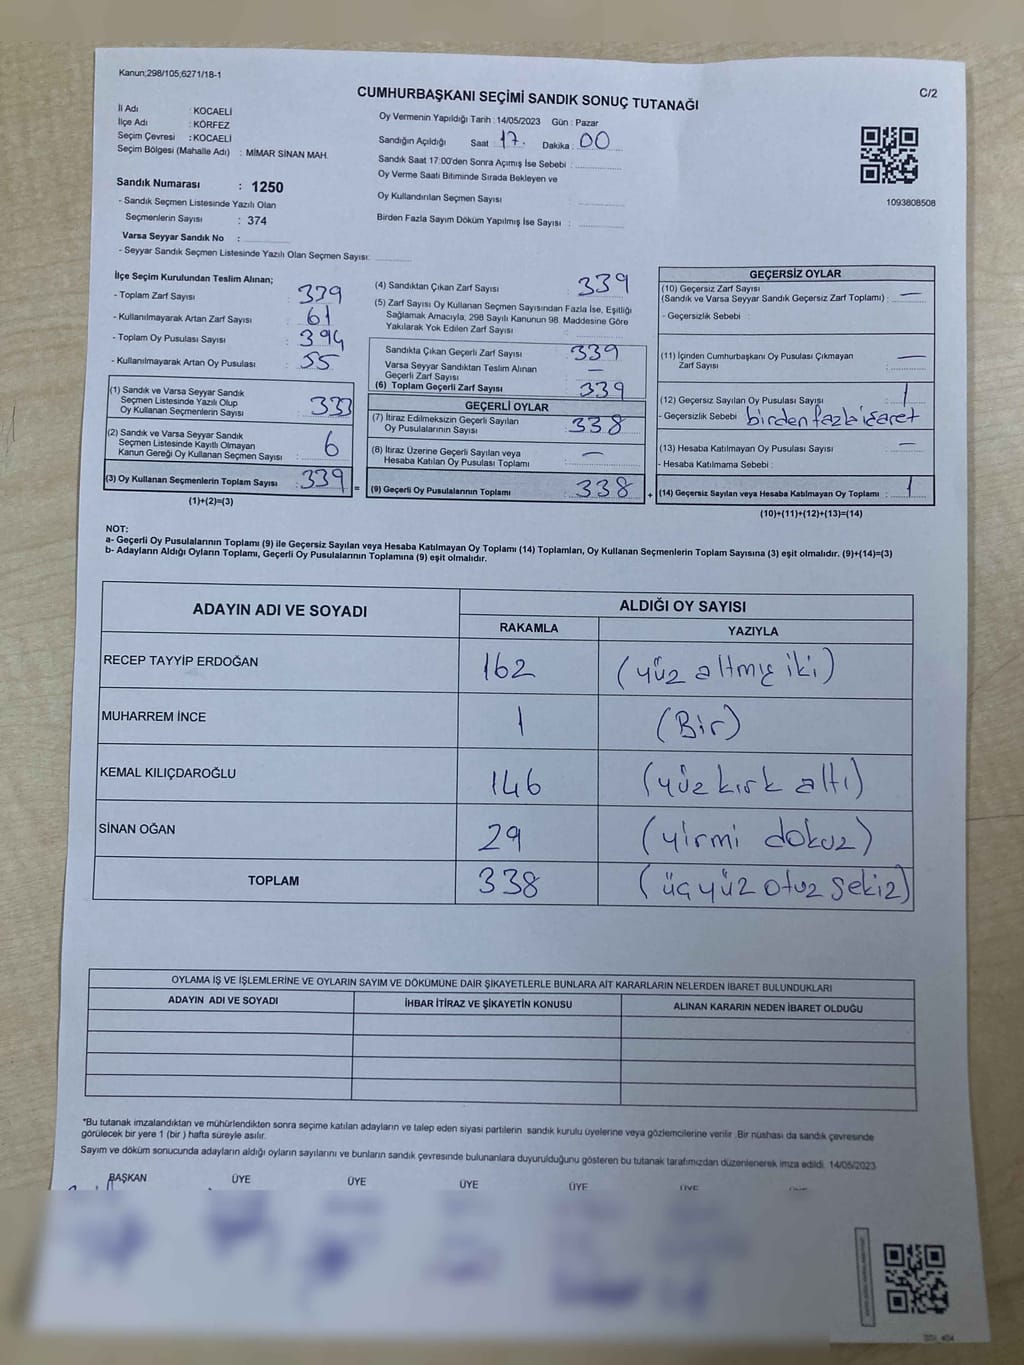 Kanun;298/105,6271/18-1
C/2
CUMHURBAŞKANI SEÇİMİ SANDIK SONUÇ TUTANAĞI
İl Adı : KOCAELİ
İlçe Adı : KÖRFEZ
Seçim Çevresi : KOCAELİ
Seçim Bölgesi (Mahalle Adı) : MİMAR SİNAN MAH.
Sandık Numarası : 1250
- Sandık Seçmen Listesinde Yazılı Olan
Seçmenlerin Sayısı : 374
Varsa Seyyar Sandık No :
- Seyyar Sandık Seçmen Listesinde Yazılı Olan Seçmen Sayısı:
Oy Vermenin Yapıldığı Tarih : 14/05/2023 Gün : Pazar
Sandığın Açıldığı Saat : 17. Dakika : 00
Sandık Saat 17:00'den Sonra Açımış İse Sebebi :
Oy Verme Saati Bitiminde Sırada Bekleyen ve
Oy Kullandırılan Seçmen Sayısı :
Birden Fazla Sayım Döküm Yapılmış İse Sayısı :
1093808508
İlçe Seçim Kurulundan Teslim Alınan;
- Toplam Zarf Sayısı :
- Kullanılmayarak Artan Zarf Sayısı : 61
- Toplam Oy Pusulası Sayısı : 394
- Kullanılmayarak Artan Oy Pusulası : 55
(1) Sandık ve Varsa Seyyar Sandık
Seçmen Listesinde Yazılı Olup
Oy Kullanan Seçmenlerin Sayısı : 333
(2) Sandık ve Varsa Seyyar Sandık
Seçmen Listesinde Kayıtlı Olmayan
Kanun Gereği Oy Kullanan Seçmen Sayısı : 6
(3) Oy Kullanan Seçmenlerin Toplam Sayısı : 339 =
(1)+(2)=(3)
(4) Sandıktan Çıkan Zarf Sayısı : 339
(5) Zarf Sayısı Oy Kullanan Seçmen Sayısından Fazla İse, Eşitliği
Sağlamak Amacıyla, 298 Sayılı Kanunun 98. Maddesine Göre
Yakılarak Yok Edilen Zarf Sayısı :
Sandıkta Çıkan Geçerli Zarf Sayısı : 339
Varsa Seyyar Sandıktan Teslim Alınan
Geçerli Zarf Sayısı : —
(6) Toplam Geçerli Zarf Sayısı : 339
GEÇERLİ OYLAR
(7) İtiraz Edilmeksizin Geçerli Sayılan
Oy Pusulalarının Sayısı : 338
(8) İtiraz Üzerine Geçerli Sayılan veya
Hesaba Katılan Oy Pusulası Toplamı : —
(9) Geçerli Oy Pusulalarının Toplamı : 338 +
GEÇERSİZ OYLAR
(10) Geçersiz Zarf Sayısı
(Sandık ve Varsa Seyyar Sandık Geçersiz Zarf Toplamı) : —
- Geçersizlik Sebebi :
(11) İçinden Cumhurbaşkanı Oy Pusulası Çıkmayan
Zarf Sayısı : —
(12) Geçersiz Sayılan Oy Pusulası Sayısı : 1
- Geçersizlik Sebebi : birden fazla işaret
(13) Hesaba Katılmayan Oy Pusulası Sayısı : —
- Hesaba Katılmama Sebebi :
(14) Geçersiz Sayılan veya Hesaba Katılmayan Oy Toplamı : 1
(10)+(11)+(12)+(13)=(14)
NOT:
a- Geçerli Oy Pusulalarının Toplamı (9) ile Geçersiz Sayılan veya Hesaba Katılmayan Oy Toplamı (14) Toplamları, Oy Kullanan Seçmenlerin Toplam Sayısına (3) eşit olmalıdır. (9)+(14)=(3)
b- Adayların Aldığı Oyların Toplamı, Geçerli Oy Pusulalarının Toplamına (9) eşit olmalıdır.
ADAYIN ADI VE SOYADI
ALDIĞI OY SAYISI
RAKAMLA YAZIYLA
RECEP TAYYİP ERDOĞAN 162 (yüz altmış iki)
MUHARREM İNCE 1 (Bir)
KEMAL KILIÇDAROĞLU 146 (yüz kırk altı)
SİNAN OĞAN 29 (yirmi dokuz)
TOPLAM 338 (üçyüz otuz sekiz)
OYLAMA İŞ VE İŞLEMLERİNE VE OYLARIN SAYIM VE DÖKÜMÜNE DAİR ŞİKAYETLERLE BUNLARA AİT KARARLARIN NELERDEN İBARET BULUNDUKLARI
ADAYIN ADI VE SOYADI İHBAR İTİRAZ VE ŞİKAYETİN KONUSU ALINAN KARARIN NEDEN İBARET OLDUĞU
*Bu tutanak imzalandıktan ve mühürlendikten sonra seçime katılan adayların ve talep eden siyasi partilerin sandık kurulu üyelerine veya gözlemcilerine verilir .Bir nüshası da sandık çevresinde
görülecek bir yere 1 (bir ) hafta süreyle asılır.
Sayım ve döküm sonucunda adayların aldığı oyların sayılarını ve bunların sandık çevresinde bulunanlara duyurulduğunu gösteren bu tutanak tarafımızdan düzenlenerek imza edildi. 14/05/2023
BAŞKAN ÜYE ÜYE ÜYE ÜYE ÜYE